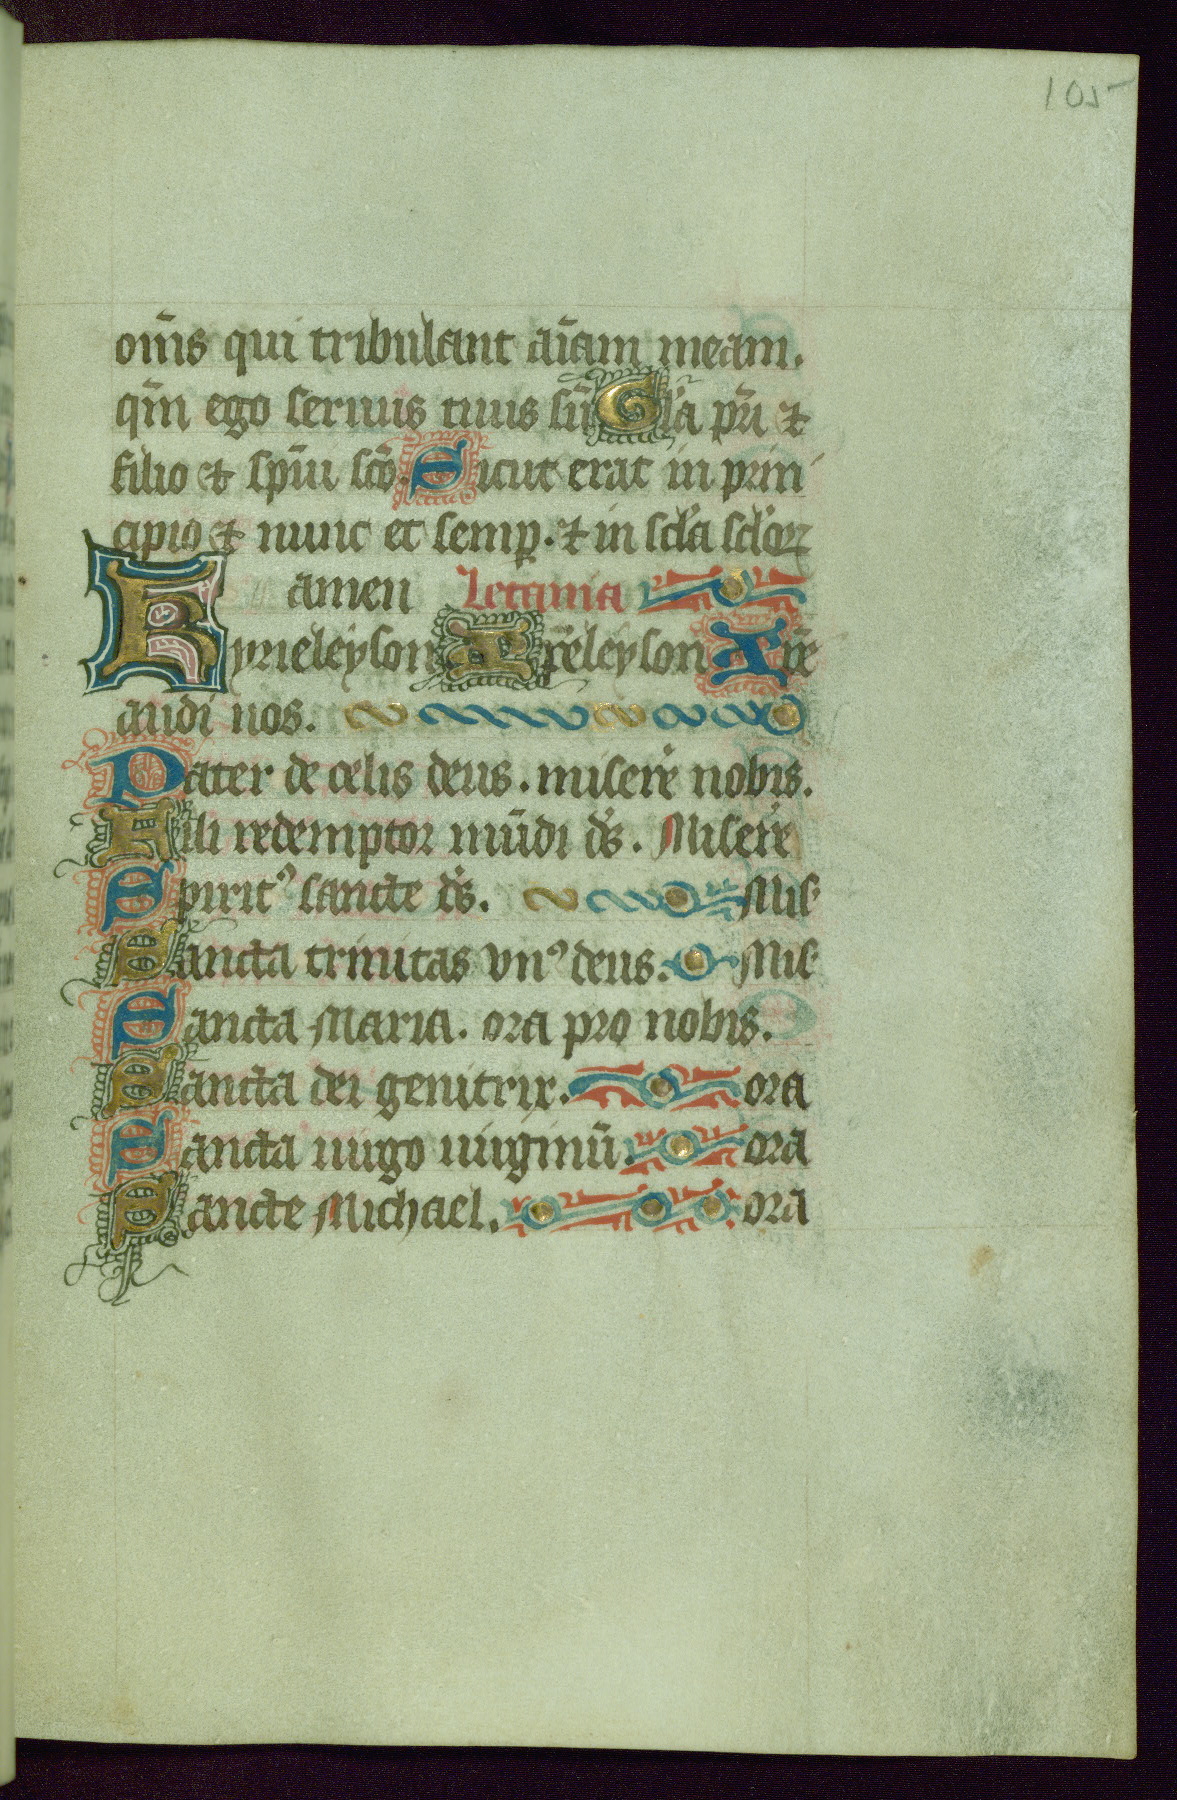 105
om̄is qui tribulant aīam meam.
qm̄ ego seruus tuus sū Gl'a pr̄i ⁊
filio ⁊ sp̄ui sc̄o. Sicut erat in prin
cipio ⁊ nunc et semꝑ. ⁊ in scl'a scl'oꝝ
amen Letania
Kyrieleyson Xp̄eleyson Xp̄e
audi nos.
Pater de celis deus. miserē nobis.
Fili redemptor mūdi ds̄. Miserē
Spiritꝰ sancte ds̄. Mis
Sancta trinitas vnꝰ deus. Mis
Sancta Maria. ora pro nobis.
Sancta dei genitrix. ora
Sancta uirgo uirginū. ora
Sancte Michael. ora